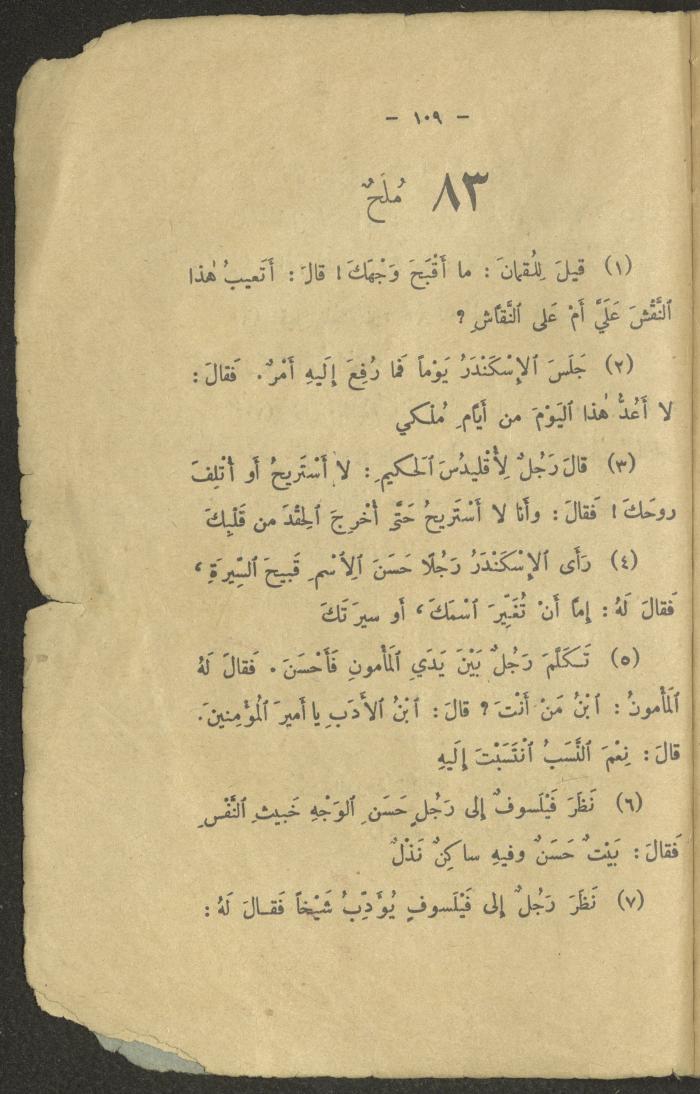 - ١٠٩ -
٨٣ مُلَحٌ
(١) قيلَ لِلُقمانَ : ما أَقْبَحَ وَجْهَكَ ! قالَ : أَتَعيبُ هٰذا
ٱلنَّقْشَ عَلَيَّ أَمْ عَلى ٱلنَّقَّاشِ ؟
(٢) جَلَسَ ٱلإِسْكَنْدَرُ يَوْماً فَما رُفِعَ إِلَيهِ أَمْرٌ . فَقالَ :
لا أَعُدُّ هٰذا ٱليَوْمَ من أَيَّامِ مُلْكي
(٣) قالَ رَجُلٌ لِأُقْليدُسَ ٱلحَكيمِ : لا أَسْتَريحُ أَو أُتْلِفَ
روحَكَ ! فَقالَ : وأَنا لا أَسْتَريحُ حَتَّى أُخْرِجَ ٱلحِقْدَ من قَلْبِكَ
(٤) رَأَى ٱلإِسْكَنْدَرُ رَجُلًا حَسَنَ ٱلِٱسْمِ قَبيحَ ٱلسِّيرَةِ ،
فَقالَ لَهُ : إِمَّا أَنْ تُغَيِّرَ ٱسْمَكَ ، أَو سيرَتَكَ
(٥) تَكَلَّمَ رَجُلٌ بَيْنَ يَدَيِ ٱلمَأْمونِ فَأَحْسَنَ . فَقالَ لَهُ
ٱلمَأْمونُ : ٱبْنُ مَنْ أَنْتَ ؟ قالَ : ٱبْنُ ٱلأَدَبِ يا أَميرَ ٱلمُؤْمِنينَ .
قالَ : نِعْمَ ٱلنَّسَبُ ٱنْتَسَبْتَ إِلَيهِ
(٦) نَظَرَ فَيْلَسوفٌ إِلى رَجُلٍ حَسَنِ ٱلوَجْهِ خَبيثِ ٱلنَّفْسِ
فَقالَ : بَيْتٌ حَسَنٌ وفيهِ ساكِنٌ نَذْلٌ
(٧) نَظَرَ رَجُلٌ إِلى فَيْلَسوفٍ يُؤَدِّبُ شَيْخاً فَقالَ لَهُ :